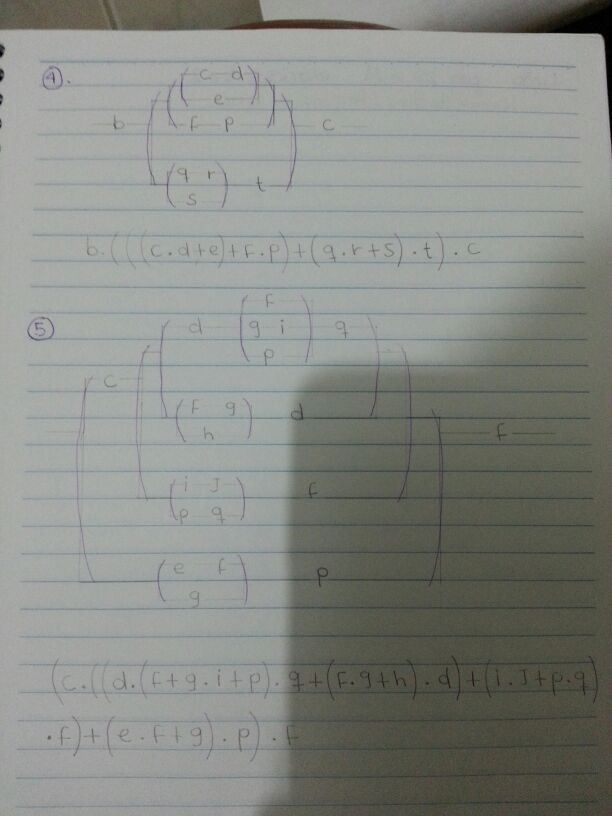 4.
c d
e
b f p c
q r t
s
b.(((c.d+e)+f.p)+(q.r+s).t).c
5
f
d g i q
p
c
f g d
h
f
i J f
p q
e f p
g
(c.((d.(f+g.i+p).q+(f.g+h).d)+(i.J+p.q)
.f)+(e.f+g).p).f